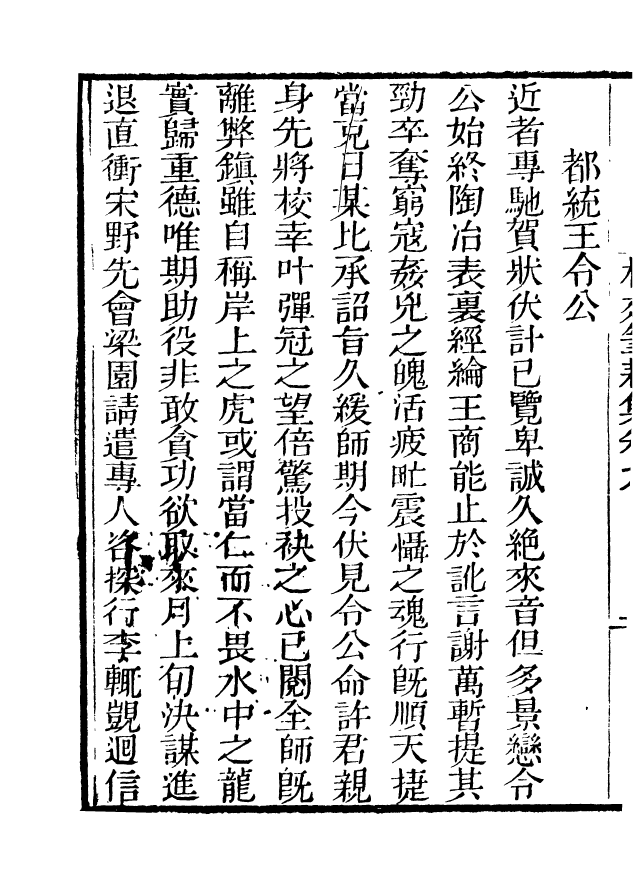 都統王令公
近者專馳賀狀伏計已覽卑誠久絕來音但多景戀令
公始終陶冶表裏經綸王商能止於訛言謝萬暫提其
勁卒奪窮寇姦兇之魄活疲甿震懾之魂行旣順天捷
當克日某比承詔旨久緩師期今伏見令公命許君親
身先將校幸叶彈冠之望倍驚投袂之心已閱全師旣
離弊鎭雖自稱岸上之虎或謂當仁而不畏水中之龍
實歸重德唯期助役非敢貪功欲取來月上旬決謀進
退直衝宋野先會梁園請遣專人咨探行李輒覬迴信